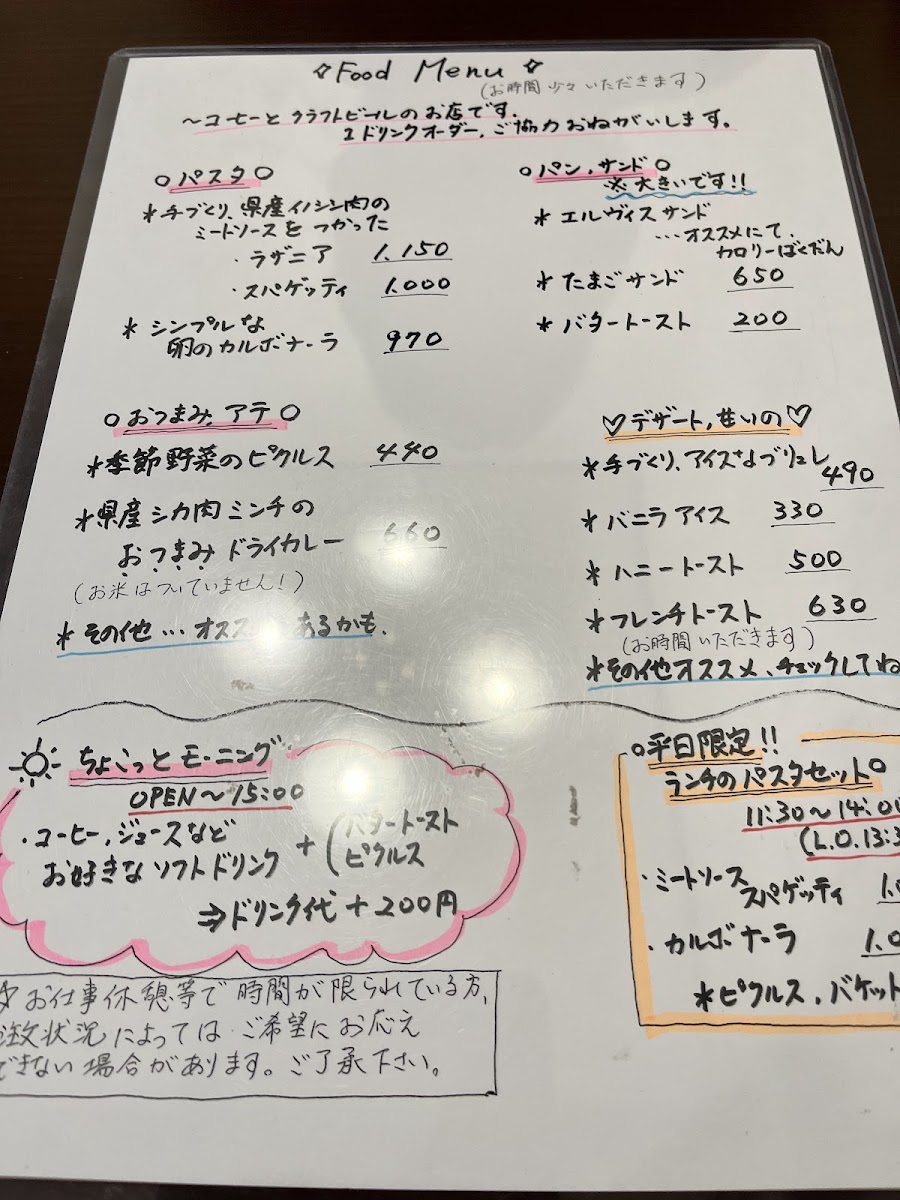 Food Menu
(お時間 少々 いただきます)
～コーヒーと クラフトビールのお店です.
1ドリンクオーダー, ご協力おねがいします。
○パスタ○
*手づくり、県産イノシシ肉の
ミートソースをつかった
・ラザニア 1,150
・スパゲッティ 1.000
*シンプルな
卵のカルボナーラ 970
○パン,サンド○
※大きいです!!
*エルヴィスサンド
...オススメにて.
カロリーばくだん
*たまごサンド 650
*バタートースト 200
○おつまみ,アテ○
*季節野菜のピクルス 440
*県産シカ肉ミンチの
おつまみドライカレー 660
(お米はついていません!)
*その他…オスス あるかも.
♡デザート,甘いの♡
*手づくり、アイスなブリュレ
490
*バニラアイス 330
*ハニートースト 500
*フレンチトースト 630
(お時間いただきます)
*その他オススメ、チェックしてね
ちょこっとモーニング
OPEN～15:00
・コーヒー,ジュースなど
お好きなソフトドリンク + (バタートースト
ピクルス
⇒ドリンク代+200円
○平日限定!!
ランチのパスタセット○
11:30～14:00
(L.O.13:3
・ミートソース
スパゲッティ 1.0
・カルボナーラ 1.0
*ピクルス,バケット
☆お仕事休憩等で時間が限られている方,
注文状況によっては ご希望にお応え
できない場合があります。ご了承下さい。